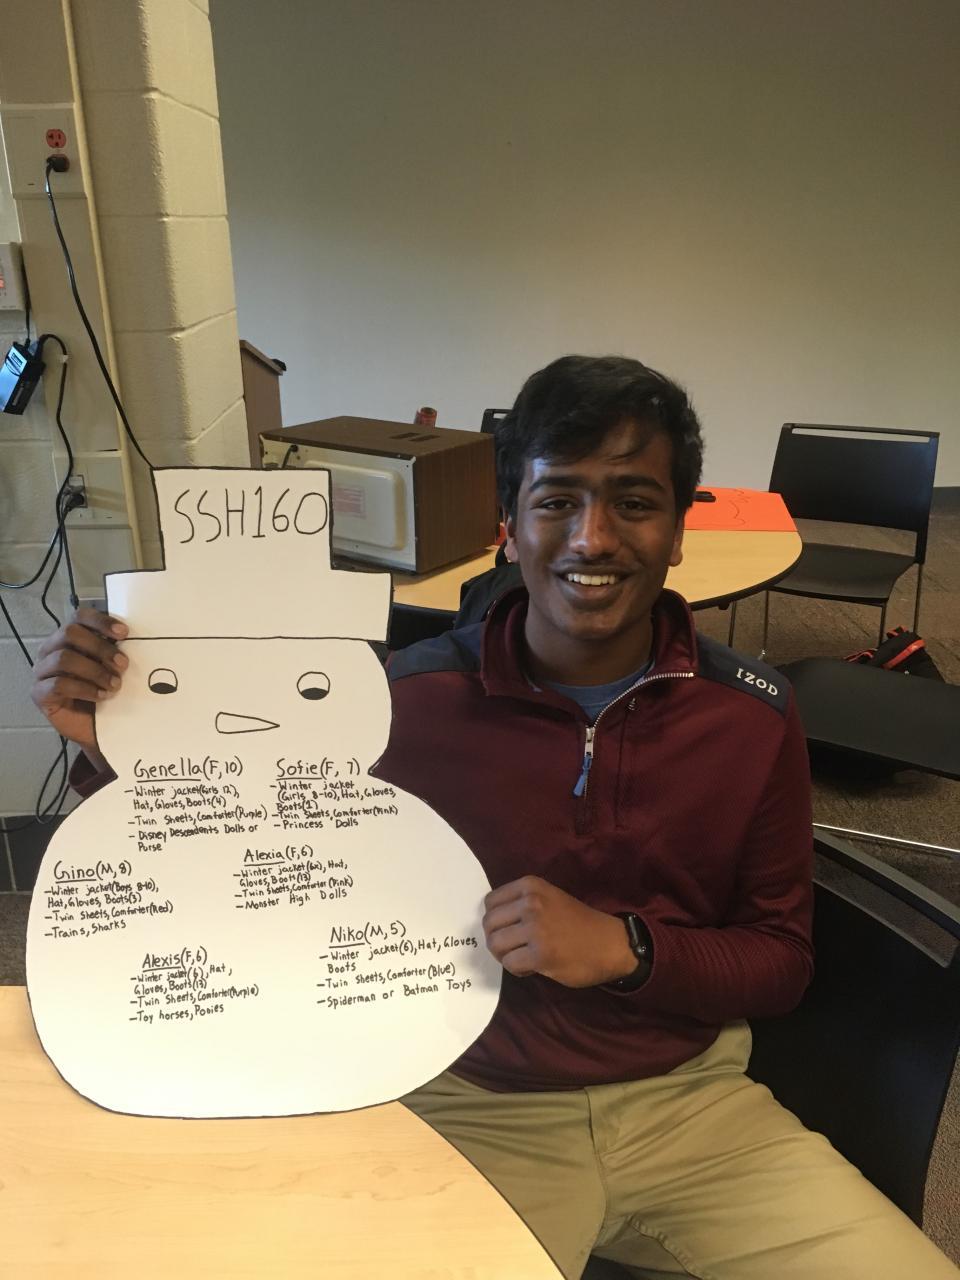 SSH160
IZOD
Genella(F,10)
-Winter jacket(Girls 12),
Hat, Gloves, Boots(4)
-Twin Sheets, Comforter(Purple)
-Disney Descendents Dolls or
Purse
Sofie(F, 7)
-Winter jacket
(Girls 8-10), Hat, Gloves,
Boots(1)
-Twin Sheets, Comforter(Pink)
-Princess Dolls
Gino(M,8)
-Winter jacket(Boys 8-10),
Hat, Gloves, Boots(3)
-Twin Sheets, Comforter(Red)
-Trains, Sharks
Alexia(F,6)
-Winter jacket(6x), Hat,
Gloves, Boots(13)
-Twin Sheets, Comforter(Pink)
-Monster High Dolls
Alexis(F,6)
-Winter jacket(6), Hat,
Gloves, Boots(13)
-Twin Sheets, Comforter(Purple)
-Toy horses, Ponies
Niko(M,5)
-Winter jacket(6), Hat, Gloves,
Boots
-Twin Sheets, Comforter(Blue)
-Spiderman or Batman Toys